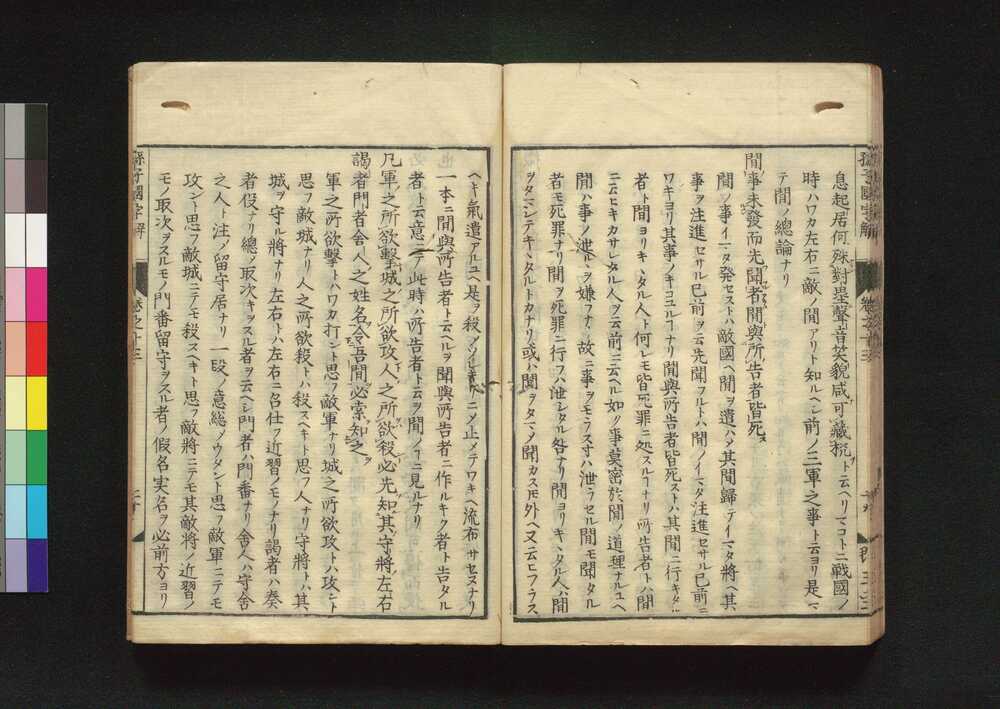 息起居何殊對壘聲音笑貌咸可藏抳ト云ヘリマコトニ戰國ノ
時ハワカ左右ニ敵ノ間アリト知ルヘシ前ノ三軍之事ト云ヨリ是マ
テ間ノ總論ナリ
間事未發而先聞者間與所告者皆死ス
間ノ事イマタ発セストハ敵國ヘ間ヲ遣ハメ其間歸テイマタ將ヘ其
事ヲ注進セサル已前ヲ云先聞フルトハ間ノイマタ注進セサル已前ニ
ワキヨリ其事ノキコユルヿナリ間與所告者皆死ストハ其間ニ行キタル
者ト間ヨリキヽタル人ト何レモ皆死罪ニ処スルヿナリ所告者トハ間
ニ云ヒキカサレタル人ヲ云前ニ云ヘル如ク事莫密於間ノ道理ナルユヘ
間ハ事ノ泄ルヽヲ嫌フナリ故ニ事ヲモラス寸ハ泄ラセル間モ聞タル
者モ死罪ナリ間ヲ死罪ニ行フハ泄シタル咎ナリ間ヨリキヽタル人ハ間
ヲタマシテキヽタルトカナリ或ハ間ヲタマメ聞カスモ外ヘ又云ヒフラス
ヘキ氣遣アルユヘ是ヲ殺メソヒキニメ止メテワキヘ流布サセヌナリ
一本ニ間與所告者ト云ヘルヲ聞與所告者ニ作ルキク者ト告タル
者ト云意ニテ此時ハ所告者トヲ間ノヿニ見ルナリ
凡軍之所欲擊城之所欲攻人之所欲殺必先知其守將左右
謁者門者舍人之姓名令吾間必索知之ヲ
軍之所欲擊トハワカ打ント思フ敵軍ナリ城之所欲攻トハ攻ント
思フ敵城ナリ人之所欲殺トハ殺スヘキト思フ人ナリ守將トハ其
城ヲ守ル將ナリ左右トハ左右ニ召仕フ近習ノモノナリ謁者ハ奏
者役ナリ總ノ取次キヲスル者ヲ云ヘシ門者ハ門番ナリ舍人ハ守舍
之人ト注ノ留守居ナリ一段ノ意総メウタント思フ敵軍ニテモ
攻ント思フ敵城ニテモ殺スヘキト思フ敵將ニテモ其敵將ノ近習ノ
モノ取次ヲスルモノ門番留守ヲスル者ノ假名実名ヲ必前方ヨリ
孫子國字解
卷之十三